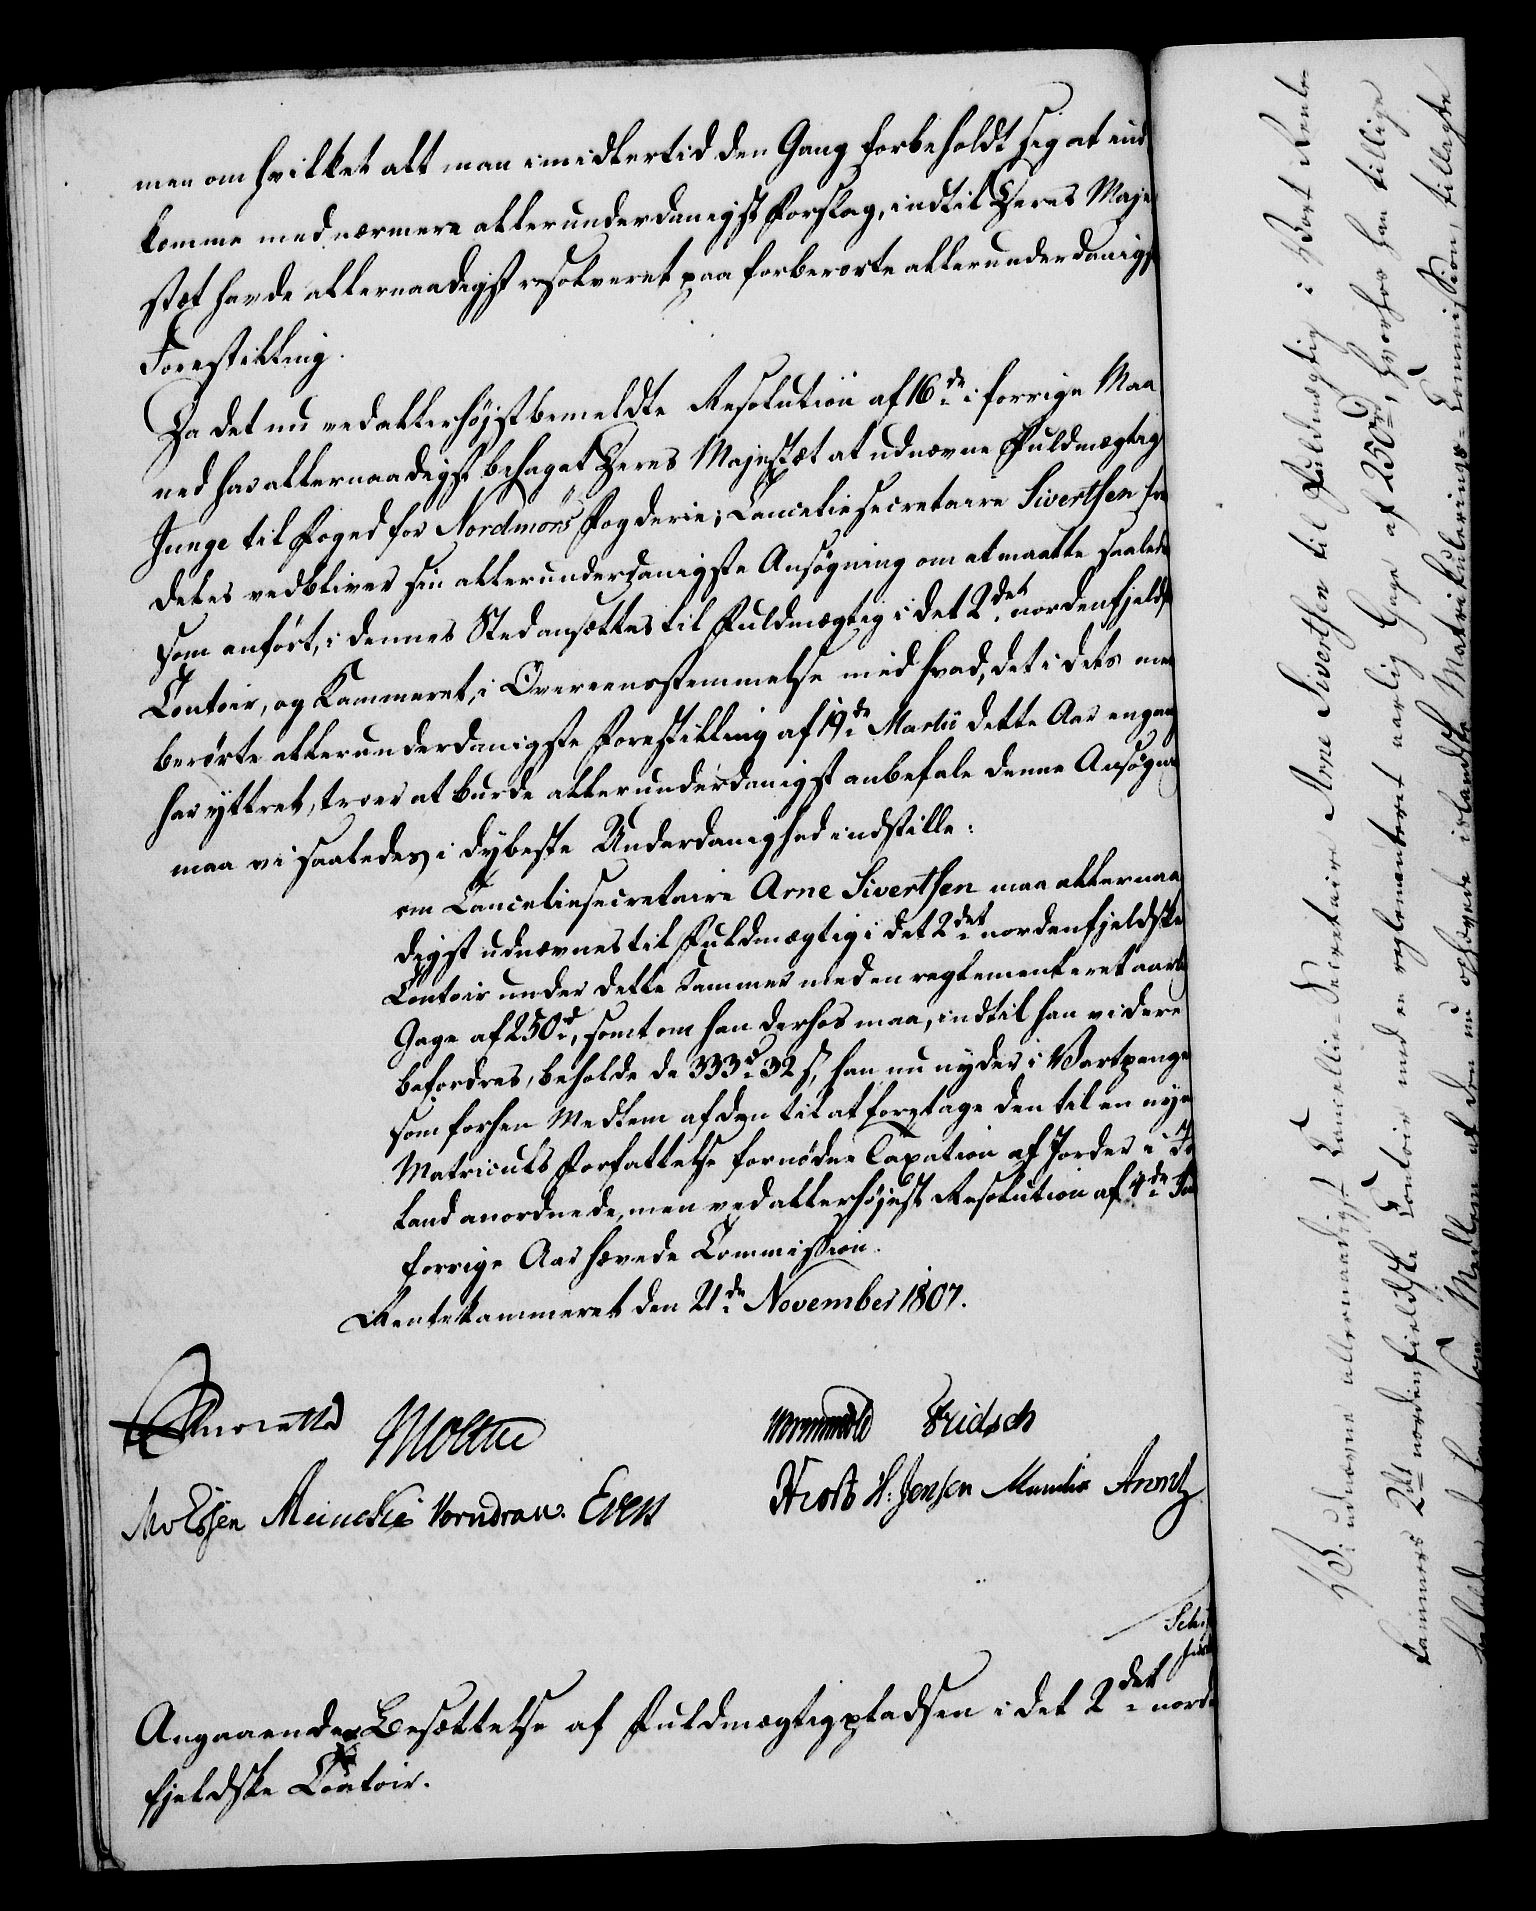 men om hvilket alt man imidlertid den Gang forbeholdt sig at ind
komme med nærmere allerunderdanigst Forslag, indtil Deres Maje
stæt havde allernaadigst resolveret paa forberørte allerunderdanigst
Forestilling.
Da det nu ved allerhøjstbemeldte Resolution af 16de i forrige Maa
ned har allernaadigst behaget Deres Majestæt at udnævne Fuldmægtig
Junge til Foged for Nordmørs Fogderie; Cancelliesecretaire Sivertsen frem
deles vedbliver sin allerunderdanigste Ansøgning om at maatte saaledes
som anført, i dennes Sted ansættes til Fuldmægtig i det 2det nordenfjeldske
Contoir, og Kammeret, i Overeensstemmelse med hvad, det i dets
berørte allerunderdanigste Forestilling af 19de Martii dette Aar engang
har yttret, troer at burde allerunderdanigst anbefale denne Ansøgning
maa vi saaledes i dybeste Underdanighed indstille:
om Cancelliesecretaire Arne Sivertsen maa allernaa
digst udnævnes til Fuldmægtig i det 2det nordenfjeldske
Contoir under dette Kammer med en reglementeret aarlig
Gage af 250 rd, samt om han derhos maa, indtil han videre
befordres, beholde de 333 rd 32 s, han nu nyder i Vartpenge
som forhen Medlem af den til at foretage den til en nye
Matriculs Forfattelse fornødne Taxation af Jorder i Is
land anordnede, men ved allerhøjest Resolution af
forrige Aar hævede Commission.
Rentekammeret den 21de November 1807.
Moltke Wormskiold Fridsch
MvEssen Meincke Vorndran. Evers H: Jensen Arentz
Angaaende Besættelse af Fuldmægtigpladsen i det 2det norden
fjeldske Contoir.
Vi udnævne allernaadigst Cancellie-Secretaire Arne Sivertsen til Fuldmægtig i Vort Rente
kammers 2det nordenfieldske Contoir med en reglementeret aarlig Gage af 250 rd, hvorhos han tillige
Medlem af den nu ophævede islandske Matrikulerings-Commission, tillagte